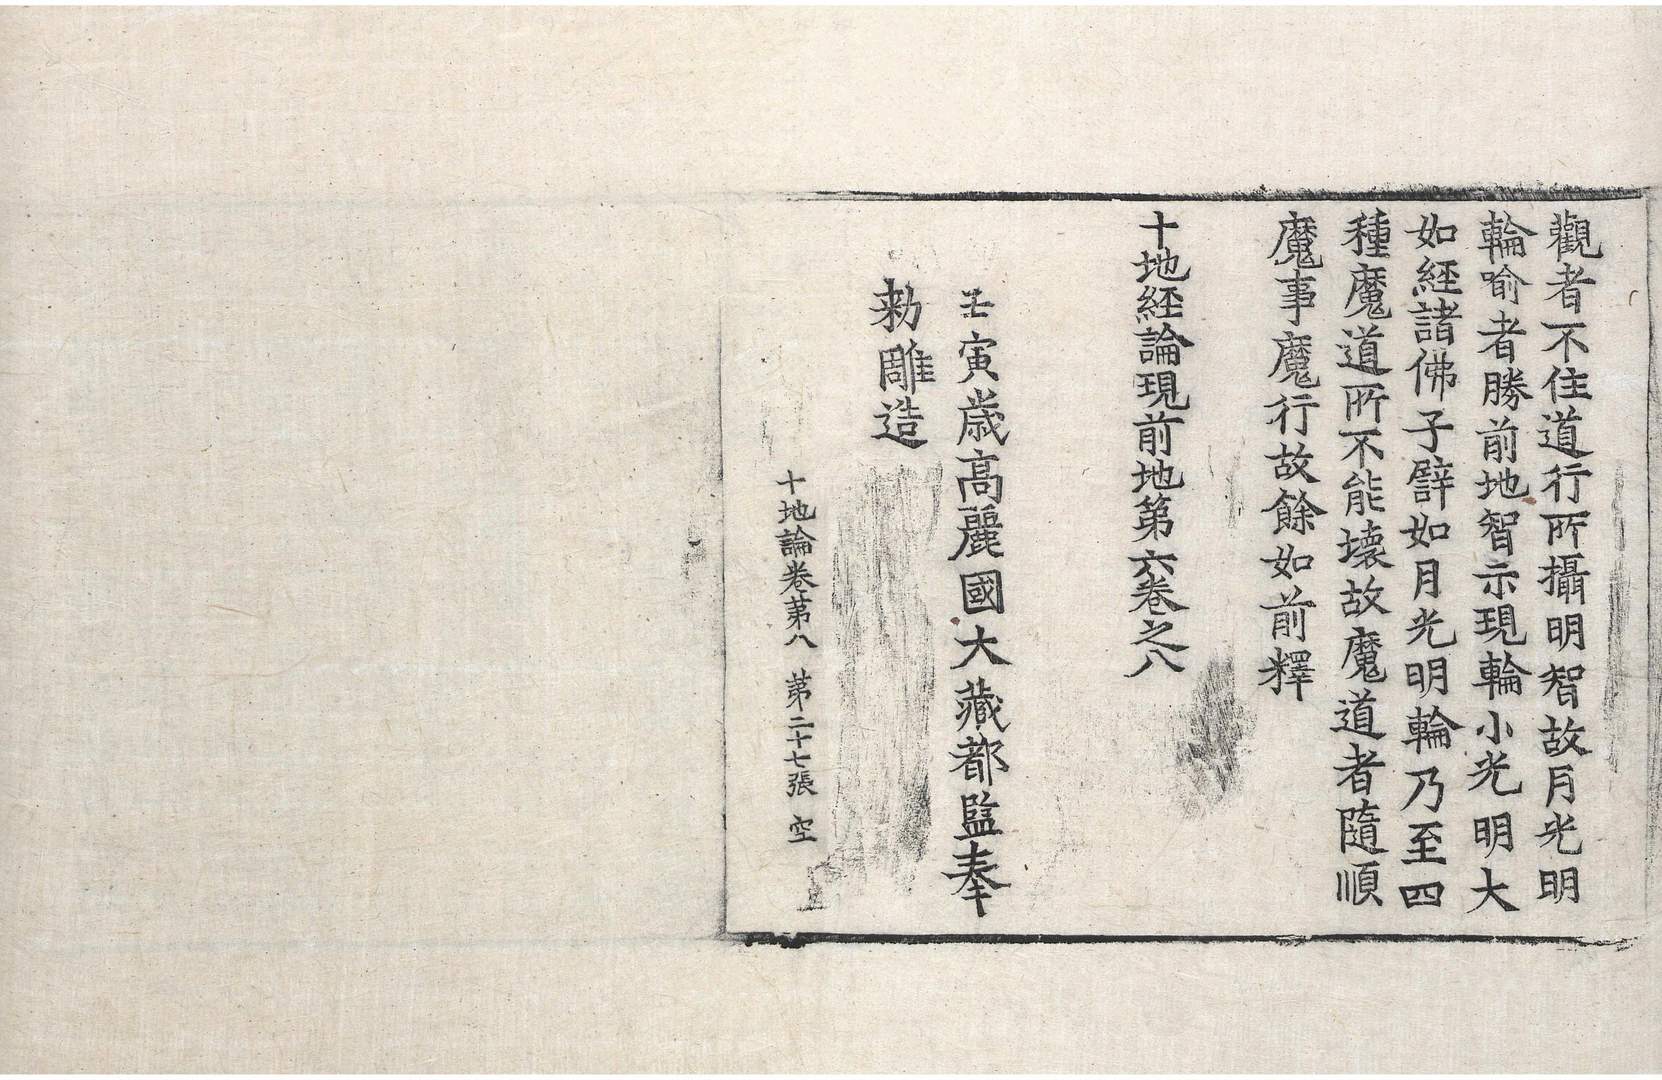 觀者不住道行所攝明智故月光明
輪喻者勝前地智示現輪小光明大
如經諸佛子譬如月光明輪乃至四
種魔道所不能壞故魔道者隨順
魔事魔行故餘如前釋
十地經論現前地第六卷之八
壬寅歲高麗國大藏都監奉
勅雕造
十地論卷第八 第二十七張 空